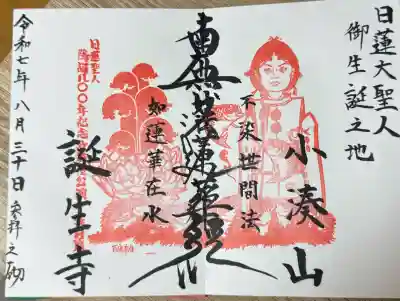 日蓮大聖人
御生誕之地
小湊山
不染世間法
南無妙法蓮華経
如蓮華在水
誕生寺
日蓮聖人
降誕八〇〇年記念
令和七年八月三十日参拝之砌